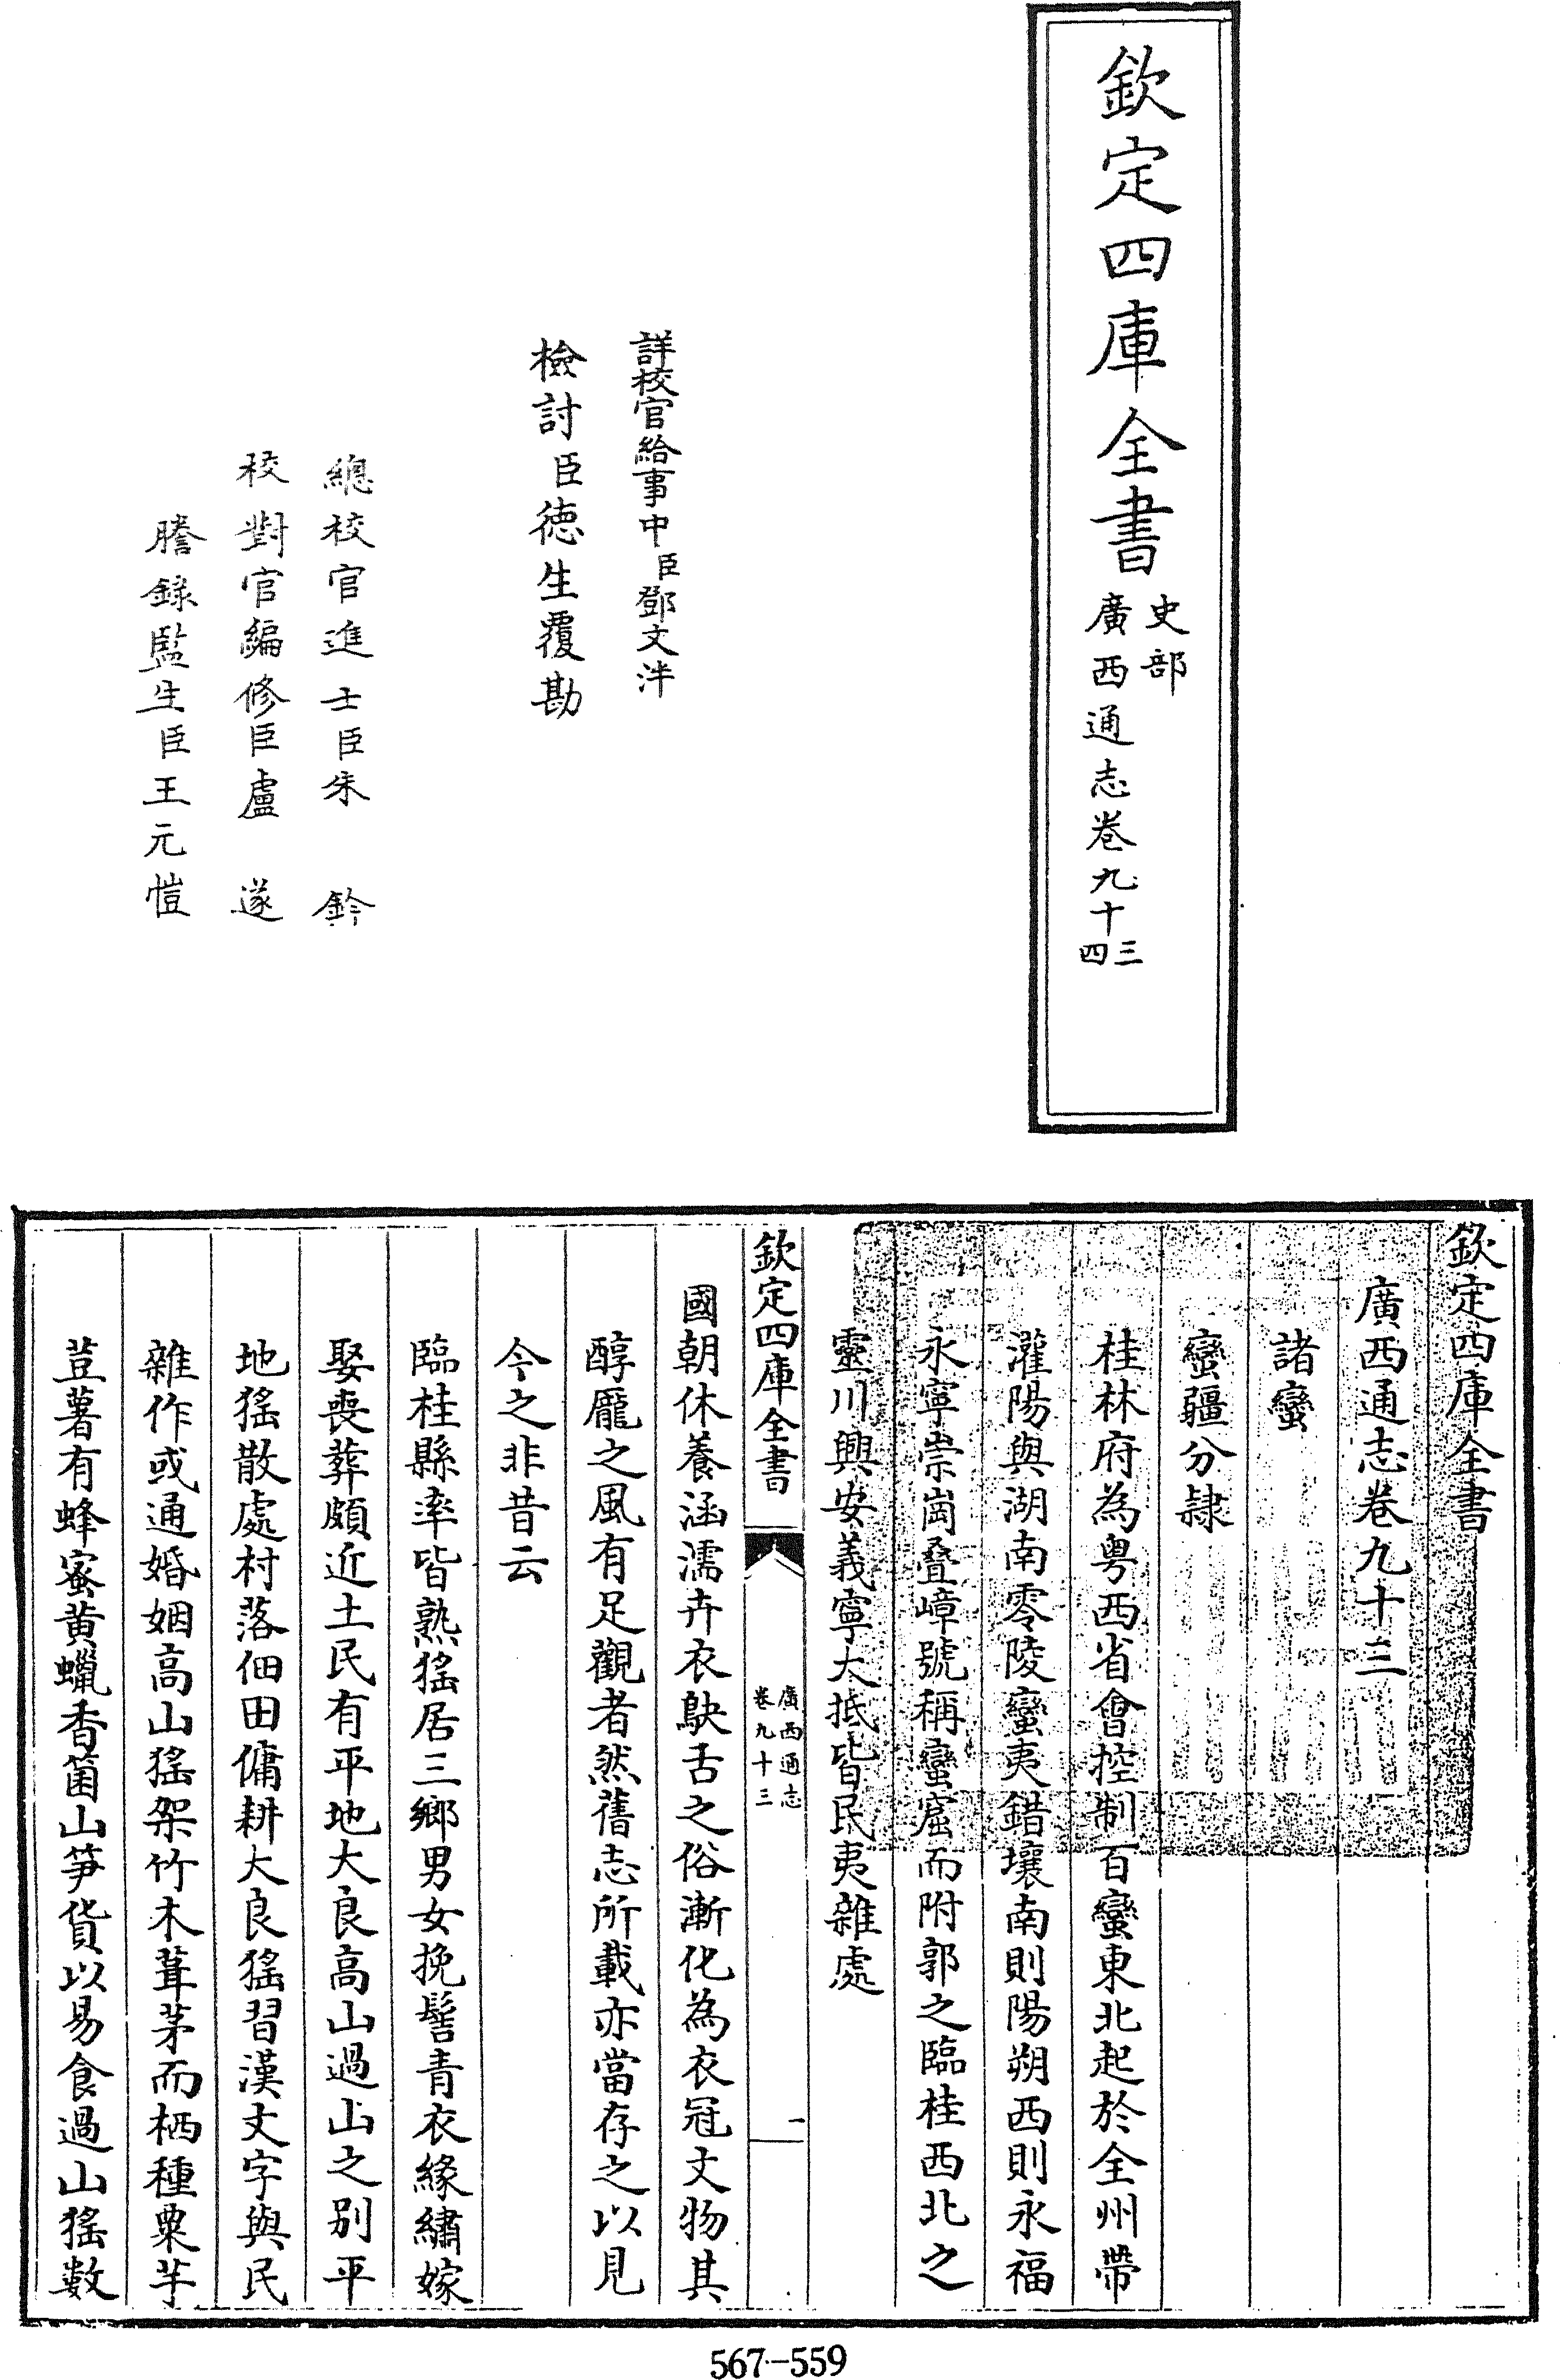 欽定四庫全書
史部
廣西通志卷九十三
四
詳校官給事中臣鄧文泮
檢討臣德生覆勘
總校官進士臣朱鈐
校對官編修臣盧遂
謄錄監生臣王元愷
欽定四庫全書
廣西通志卷九十三
諸蠻
蠻疆分隸
桂林府為粤西省會控制百蠻東北起於全州帶
灌陽與湖南零陵蠻夷錯壤南則陽朔西則永福
永寧崇崗叠嶂號稱蠻窟而附郭之臨桂西北之
靈川興安義寧大抵皆民夷雜處
欽定四庫全書
廣西通志
卷九十三
一
國朝休養涵濡卉衣鴃舌之俗漸化為衣冠文物其
醇龎之風有足觀者然舊志所載亦當存之以見
今之非昔云
臨桂縣率皆熟猺居三鄉男女挽髻青衣緣繡嫁
娶喪葬頗近土民有平地大良高山過山之别平
地猺散處村落佃田傭耕大良猺習漢文字與民
雜作或通婚姻高山猺架竹木葺茅而栖種粟芋
荳薯有蜂蜜黄蠟香菌山笋貨以易食過山猺數
567-559